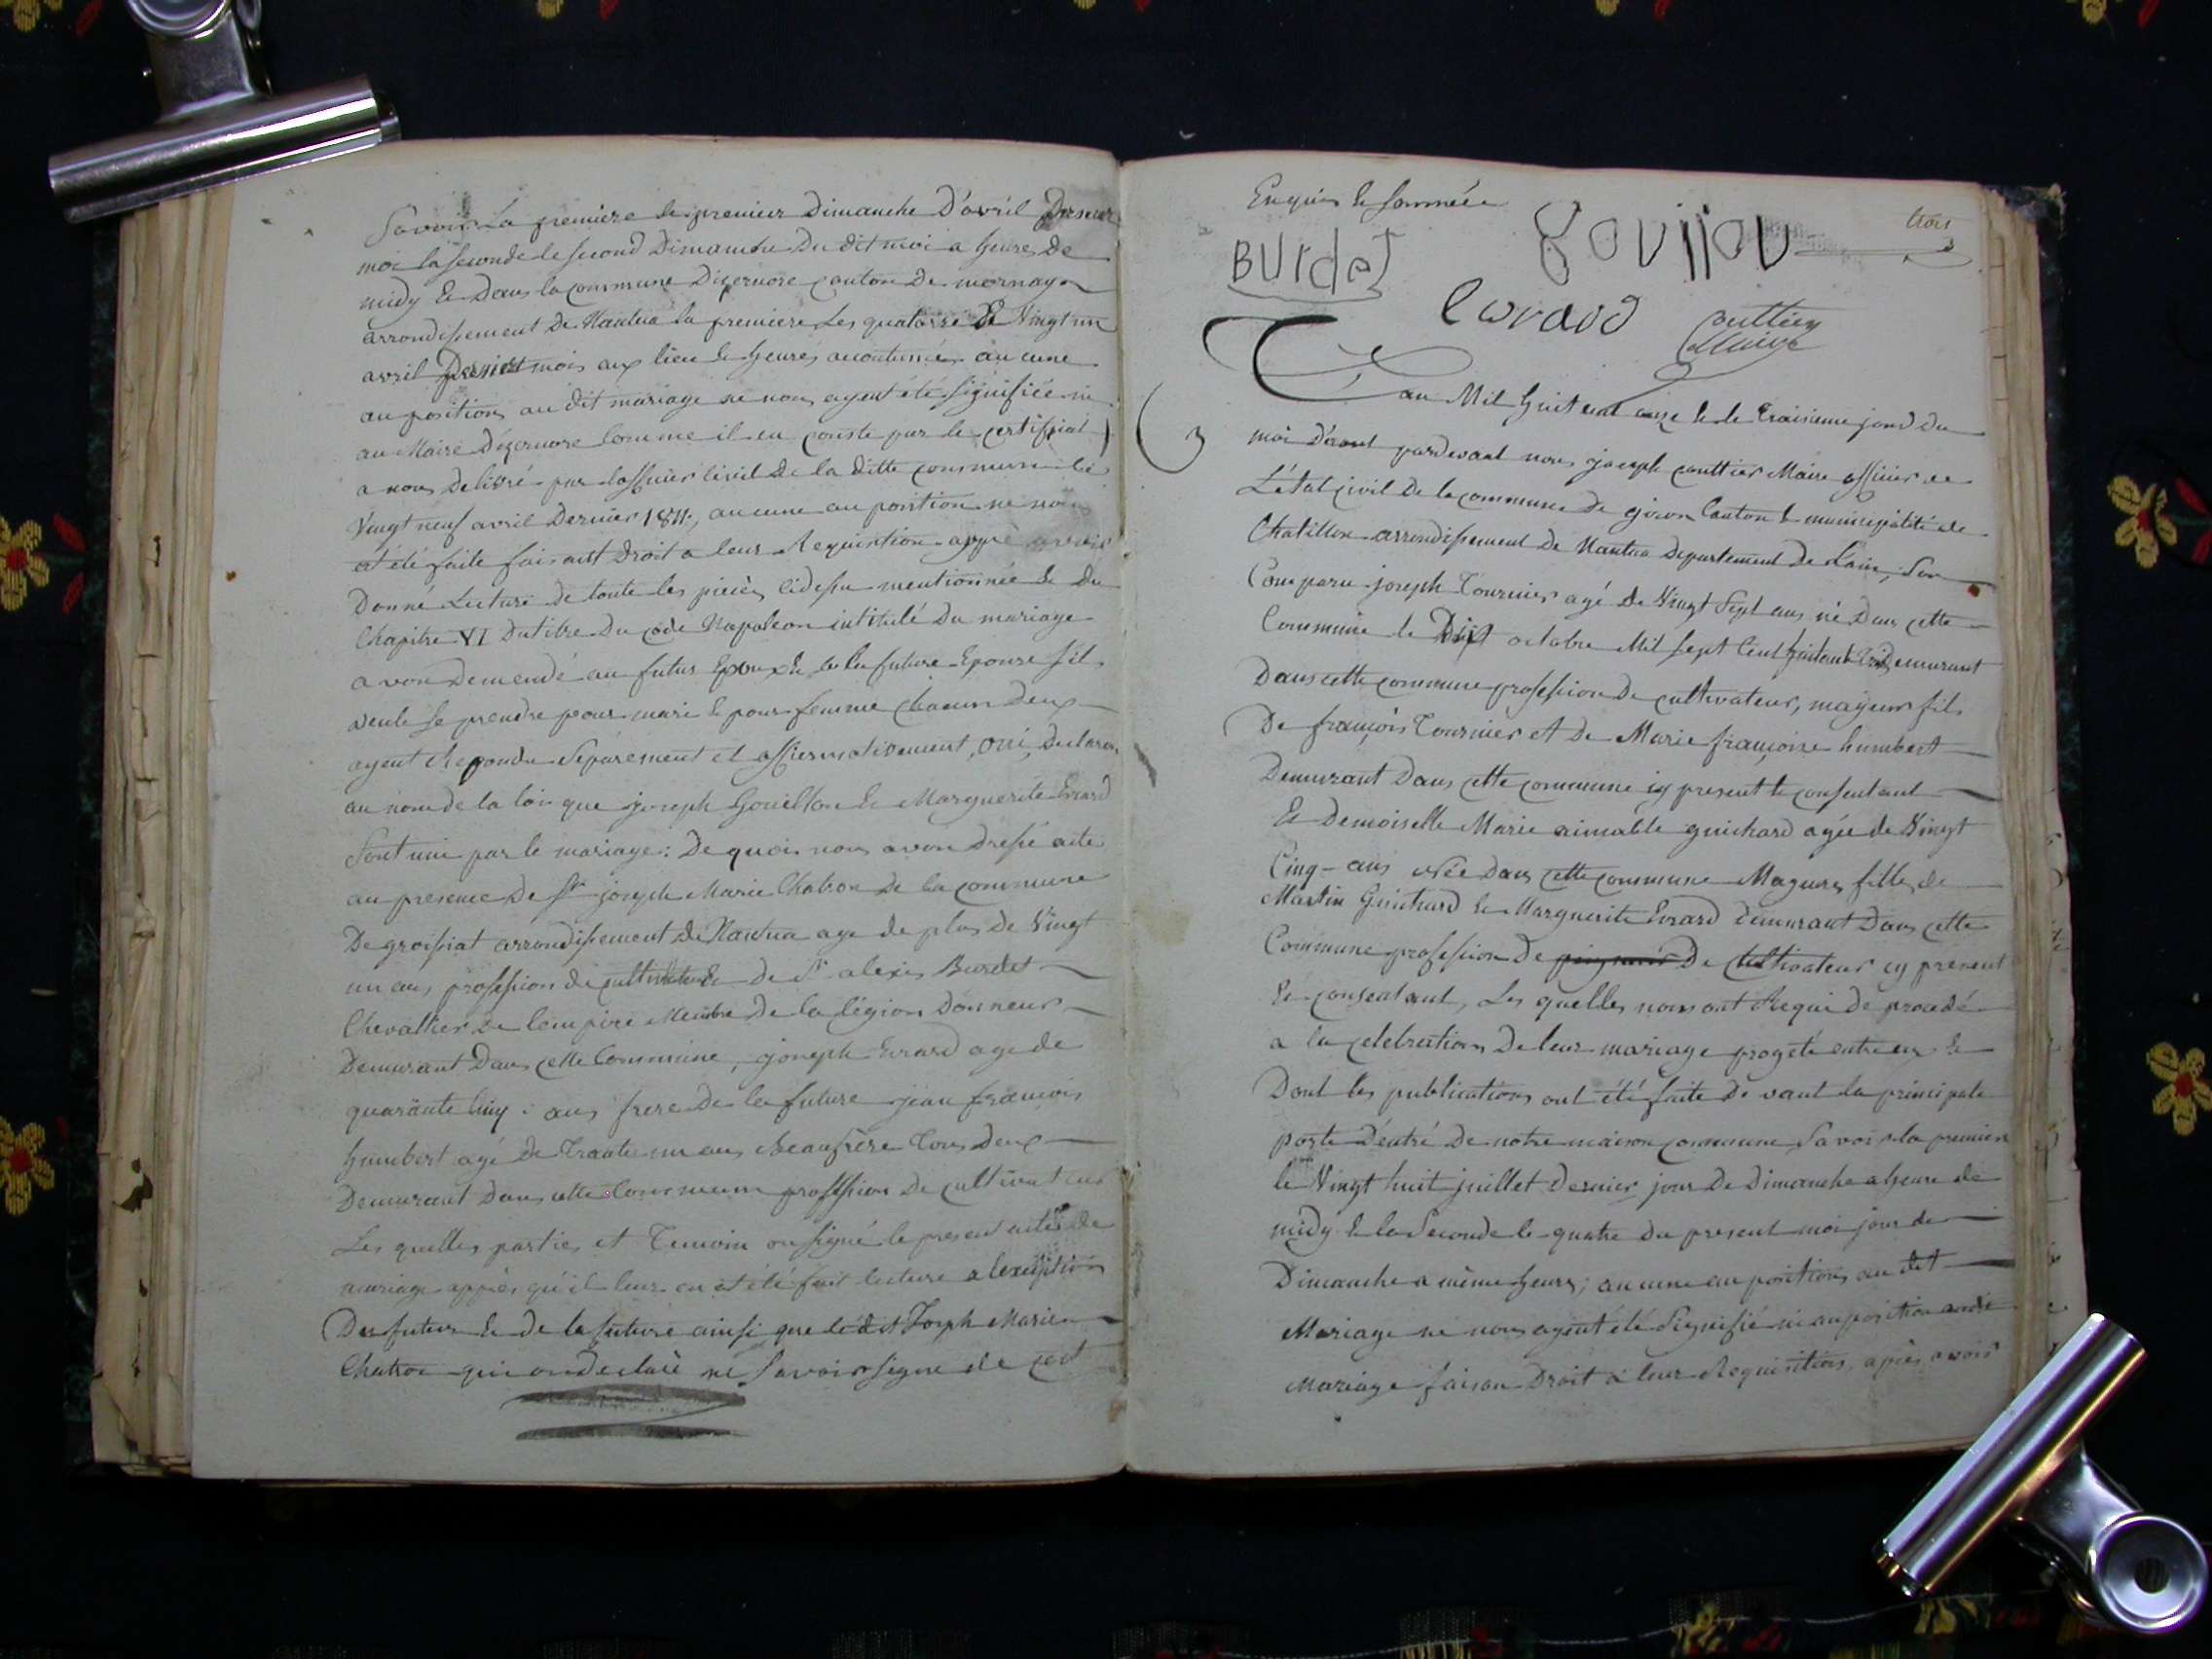 Savoir La premiere le premier Dimanche D'avril Dernier
moi la seconde le second Dimanche Du dit moi a heure de
midy & Dans la commune Dizernore canton De mornay
arrondissement De Nantua la premiere Les quatorze & Vingt un
avril Dernier mois aux lieu & heures acoutumée aucune
auposition au dit mariage ne nous ayent été signifiée ni
au Maire Dizernore Comme il en conste par le certificat
a nous Delivré par lofficier civil De la ditte commune le
Vingt neuf avril Dernier 1811, aucune auposition ne nous
at été faite faisant droit a leur Requisition appré avoir
Donné Lecture De toute les pieces cidessu mentionnée & Du
Chapitre VI Dutitre Du code Napoleon intitulé Du mariage
avon Demendé au futur Epoux & la future Epouse sil
veule se prendre pour mari & pour femme chacun Deux
ayent Repondu Séparement et affirmativement, oui, Declaron
au nom de la loi que joseph Gouillon & Marguerite Evrard
Sont uni par le mariage: De quoi nous avon Dressé acte
au presence De Sr joseph Marie Chatron De la commune
De groissiat arrondissement De Nantua age de plus de Vingt
un ans profession de cultivateur & de Sr alexis Burdet
Chevallier De lempire Membre De la légion Donneur
Demurant Dans cette Commune, joseph Evrard age de
quarante Cinq ans frere De la future jean francois
humbert agé De Trante un ans Beaufrère Tous Deux
Demurant Dans cette Commune proffession De cultivateur
Les quelles parties et Temoin on signé le present acte de
mariage apprès qu'il leur en at été fait lecture a lexeption
Du futur & de la future ainsi que ledit Joseph Marie
Chatron qui on declaré ne Savoir signe de cet
Enquis & sommée
trois
BUrdet
gouijjon
Evrard
Gauttier
Maire
3
Lan Mil huit cent onze & le Traisieme jour du
moi d'aout pardevant nous joseph Gauttier Maire officier de
L'état civil De la commune De giron Canton & municipalité de
Chatillon arrondissement De Nantua Departement De Lain, Son
Comparu joseph Tournier agé De Vingt Sept ans né Dans cette
Commune le octobre Mil Sept Cent Demurant
Dans cette commune profession De cultivateur, mayeur fils
De françois Tournier et De Marie françoise humbert
Demurant Dans cette commune icy present & consentant
Et Demoiselle Marie aimable guichard agée de Vingt
Cinq ans née Dans cette commune Mageure fille de
Martin Guichard & Marguerite Evrard demurant Dans cette
Commune profession De De cultivateur cy present
& consentant, Les quelles nous ont Requi de procedé
a la celebration De leur mariage progeté entre eux &
Dont les publications ont été faite De vant la principale
porte D'entré De notre maison commune Savoir la premiere
le Vingt huit juillet Dernier jour De Dimanche a heure de
midy & la Seconde le quatre Du present moi jour de
Dimanche a même heure; aucune auposition au dit
Mariage ne nous ayent été Signifié ni auposition au dit
Mariage faison Droit a leur Requisition après avoir